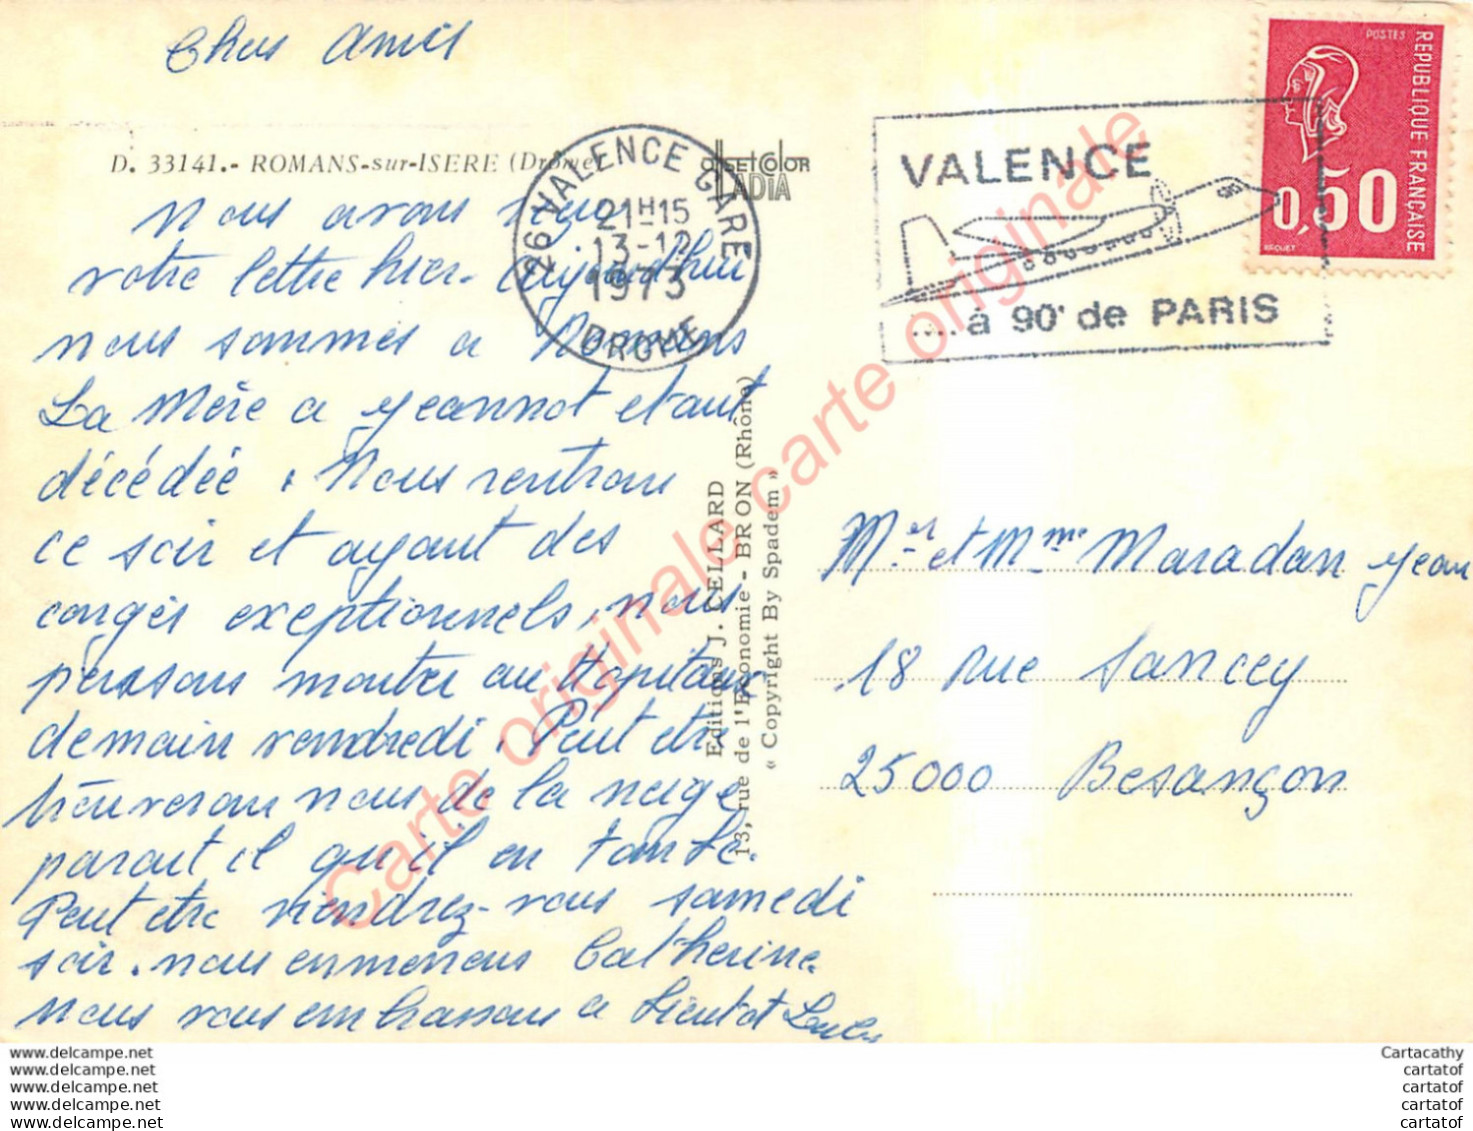 Chers Amis
D. 33141.- ROMANS-sur-ISERE (Drôme)
OFFSETCOLOR
IADIA
Nous avons reçu
votre lettre hier. Aujourd'hui
nous sommes a Romans
La Mère a yeannot etant
décédée, Nous rentrons
ce soir et ayant des
congés exeptionnels, nous
pensons monter au Hopitaux
demain vendredi. Peut etre
trouverons nous de la neige
parait il qu'il en tombe.
Peut etre viendrez-vous samedi
soir. nous emmenons Catherine
nous vous embrassons a bientot
26 VALENCE GARE
21H15
13-12
1973
DROME
VALENCE
.... à 90' de PARIS
POSTES
REPUBLIQUE FRANÇAISE
0,50
Editions J. CELLARD
13, rue de l'Economie - BRON (Rhône)
« Copyright By Spadem »
Mr et Mme Maradan yean
18 rue Sancey
25000 Besançon
Carte originale carte originale
www.delcampe.net
www.delcampe.net
www.delcampe.net
www.delcampe.net
www.delcampe.net
Cartacathy
cartatof
cartatof
cartatof
cartatof